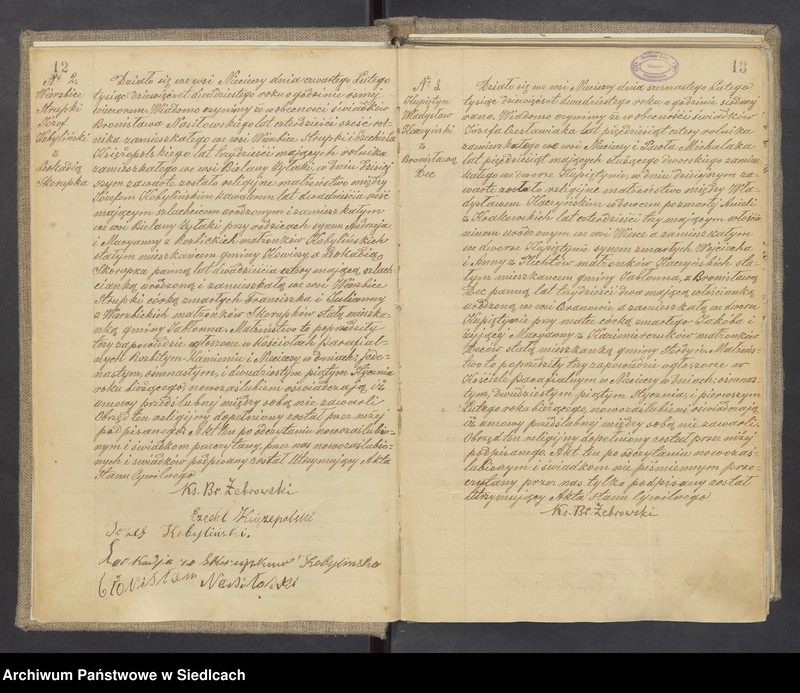 12
№ 2.
Wierzbice
Strupki
Józef
Kobyliński
z
Leokadią
Skorupka
Działo się we wsi Niecieczy dnia czwartego Lutego
tysiąc dziewięćset dwudziestego roku o godzinie ósmej
wieczorem. Wiadomo czynimy że w obecności świadków
Bronisława Nasiłowskiego lat czterdzieści sześć rol-
nika zamieszkałego we wsi Wierzbice Strupki i Ezechiela
Księżopolskiego lat trzydzieści mających rolnika
zamieszkałego we wsi Bielany Żyłaki, w dniu dzisiej
szym zawarte zostało religijne małżeństwo między
Józefem Kobylińskim kawalerem lat dwadzieścia sześć
mającym szlachcicem urodzonym i zamieszkałym
we wsi Bielany Żyłaki przy rodzicach synem Andrzeja
i Maryanny z Kozlickich małżonków Kobylińskich
stałym mieszkańcem gminy a Leokadią
Skorupka panną lat dwadzieścia cztery mającą, szlach-
cianką urodzoną i zamieszkałą we wsi Wierzbice
Strupki córką zmarłych Franciszka i Julianny
z Wierzbickich małżonków Skorupków stałą mieszka-
nką gminy Jabłonna. Małżeństwo to poprzedziły
trzy zapowiedzie ogłoszone w Kościołach parafial-
nych Rozbitym Kamieniu i Niecieczy w dniach: jede-
nastym, ośmnastym, i dwudziestym piątym Stycznia
roku bieżącego, nowozaślubieni oświadczają, iż
umowy przedślubnej między sobą nie zawarli
Obrzęd ten religijny dopełniony został przez niżej
podpisanego. Akt ten po odczytaniu nowozaślubio-
nym i świadkom przeczytany, przez nas nowozaślubio-
nych i świadków podpisany został Utrzymujący Akta
Stanu Cywilnego
Ks. Br. Żebrowski
Ezechl Księzopolski
Józef Kobyliński.
Leokadja ze Skorupków Kobylinska
Bronisław Nasiłoski
13
№ 3
Kupiętyn
Władysław
Kaczyński
z
Bronisławą
Dec
Działo się we wsi Niecieczy dnia szesnastego Lutego
tysiąc dziewięćset dwudziestego roku o godzinie siódmej
rano. Wiadomo czynimy że w obecności świadków
Józefa Czesławiaka lat pięćdziesiąt cztery rolnika
zamieszkałego we wsi Niecieczy i Pawła Michalaka
lat pięćdziesiąt mających służącego dworskiego zamiesz-
kałego we dworze Kupiętynie, w dniu dzisiejszym za-
warte zostało religijne małżeństwo między Wła-
dysławem Kaczyńskim wdowcem po zmarłej Anieli
z lat czterdzieści trzy mającym włościa
ninem urodzonym we wsi a zamieszkałym
we dworze Kupiętynie synem zmarłych Wojciecha
i Anny z małżonków Kaczyńskich sta-
łym mieszkańcem gminy Jabłonna, a Bronisławą
Dec panną lat trzydzieści dwa mającą włościanką
urodzoną we wsi a zamieszkałą we dworze
Kupiętynie przy matce córką zmarłego Jakóba i
żyjącej Maryanny z Kazimierczuków małżonków
Deców stałą mieszkanką gminy Małżeńs-
two to poprzedziły trzy zapowiedzie ogłoszone w
Kościele parafialnym w Niecieczy w dniach: ośmnas-
tym, dwudziestym piątym Stycznia, i pierwszym
Lutego roku bieżącego, nowozaślubieni oświadczają
iż umowy przedślubnej między sobą nie zawarli.
Obrzęd ten religijny dopełniony został przez niżej
podpisanego. Akt ten po odczytaniu nowozaś-
lubionym i świadkom niepiśmiennym prze-
czytany przez nas tylko podpisany został
Utrzymujący Akta Stanu Cywilnego
Ks. Br. Żebrowski
Archiwum Państwowe w Siedlcach